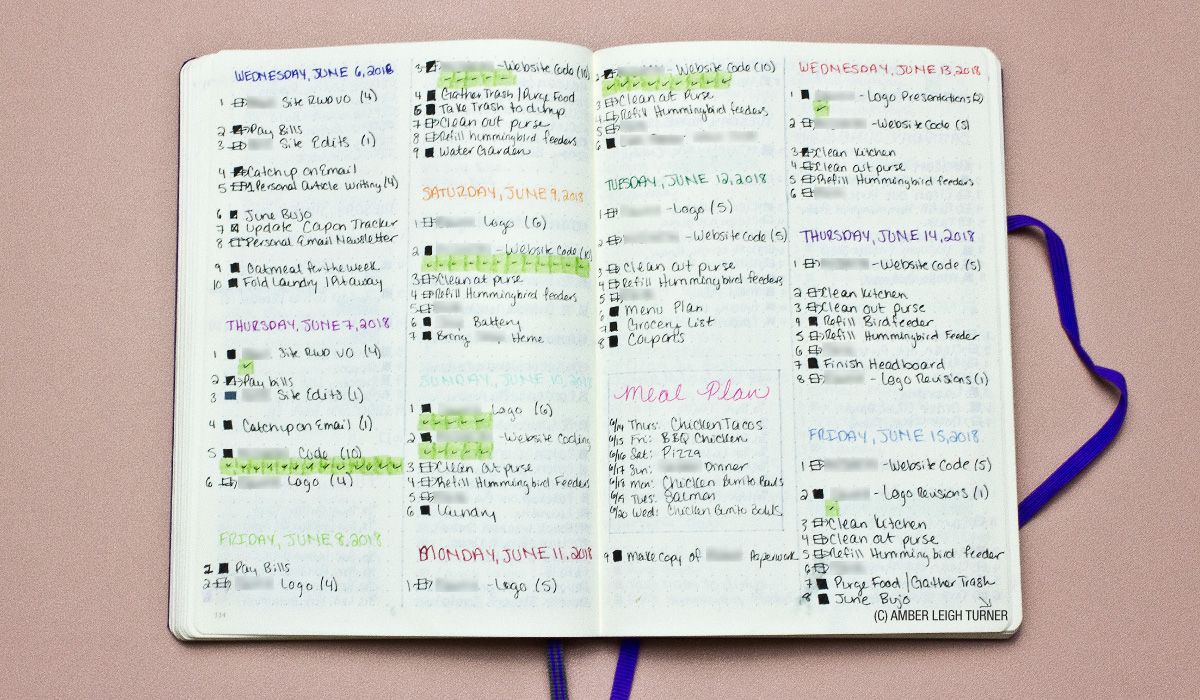 WEDNESDAY, JUNE 6, 2018
1 Site RWD VO (4)
2 Pay Bills
3 Site Edits (1)
4 Catch up on Email
5 Personal Article Writing (4)
6 June Bujo
7 Update Capon Tracker
8 Personal Email Newsletter
9 Oatmeal for the week
10 Fold Laundry / Put away
THURSDAY, JUNE 7, 2018
1 Site RWD VO (4)
2 Pay bills
3 Site Edits (1)
4 Catch up on Email (1)
5 Code (10)
6 Logo (4)
FRIDAY, JUNE 8, 2018
1 Pay Bills
2 Logo (4)
334
3 - Website Code (10)
4 Gather Trash / Purge Food
5 Take Trash to dump
7 Clean out purse
8 Refill hummingbird feeders
9 Water Garden
SATURDAY, JUNE 9, 2018
1 Logo (6)
2 - Website Code (10)
3 Clean out purse
4 Refill Hummingbird feeders
5
6 Battery
7 Bring Home
SUNDAY, JUNE 10, 2018
1 Logo (6)
2 - Website Coding
3 Clean out purse
4 Refill Hummingbird Feeders
5
6 Laundry
MONDAY, JUNE 11, 2018
1 - Logo (5)
2 - Website Code (10)
3 Clean out Purse
4 Refill Hummingbird feeders
5
6
TUESDAY, JUNE 12, 2018
1 - Logo (5)
2 - Website Code (5)
3 Clean out purse
4 Refill Hummingbird feeders
5
6 Menu Plan
7 Grocery List
8 Coupons
Meal Plan
6/14 Thurs: Chicken Tacos
6/15 Fri: BBQ Chicken
6/16 Sat: Pizza
6/17 Sun: Dinner
6/18 Mon: Chicken Burrito Bowls
6/19 Tues: Salmon
6/20 Wed: Chicken Burrito Bowls
9 Make copy of Paperwork
WEDNESDAY, JUNE 13, 2018
1 - Logo Presentation
2 - Website Code (5)
3 Clean Kitchen
4 Clean out purse
5 Refill Hummingbird feeders
6
THURSDAY, JUNE 14, 2018
1 - Website Code (5)
2 Clean Kitchen
3 Clean out purse
4 Refill Birdfeeder
5 Refill Hummingbird Feeder
6
7 Finish Headboard
8 - Logo Revisions (1)
FRIDAY, JUNE 15, 2018
1 - Website Code (5)
2 - Logo Revisions (1)
3 Clean Kitchen
4 Clean out purse
5 Refill Hummingbird feeder
6
7 Purge Food / Gather Trash
8 June Bujo
(C) AMBER LEIGH TURNER